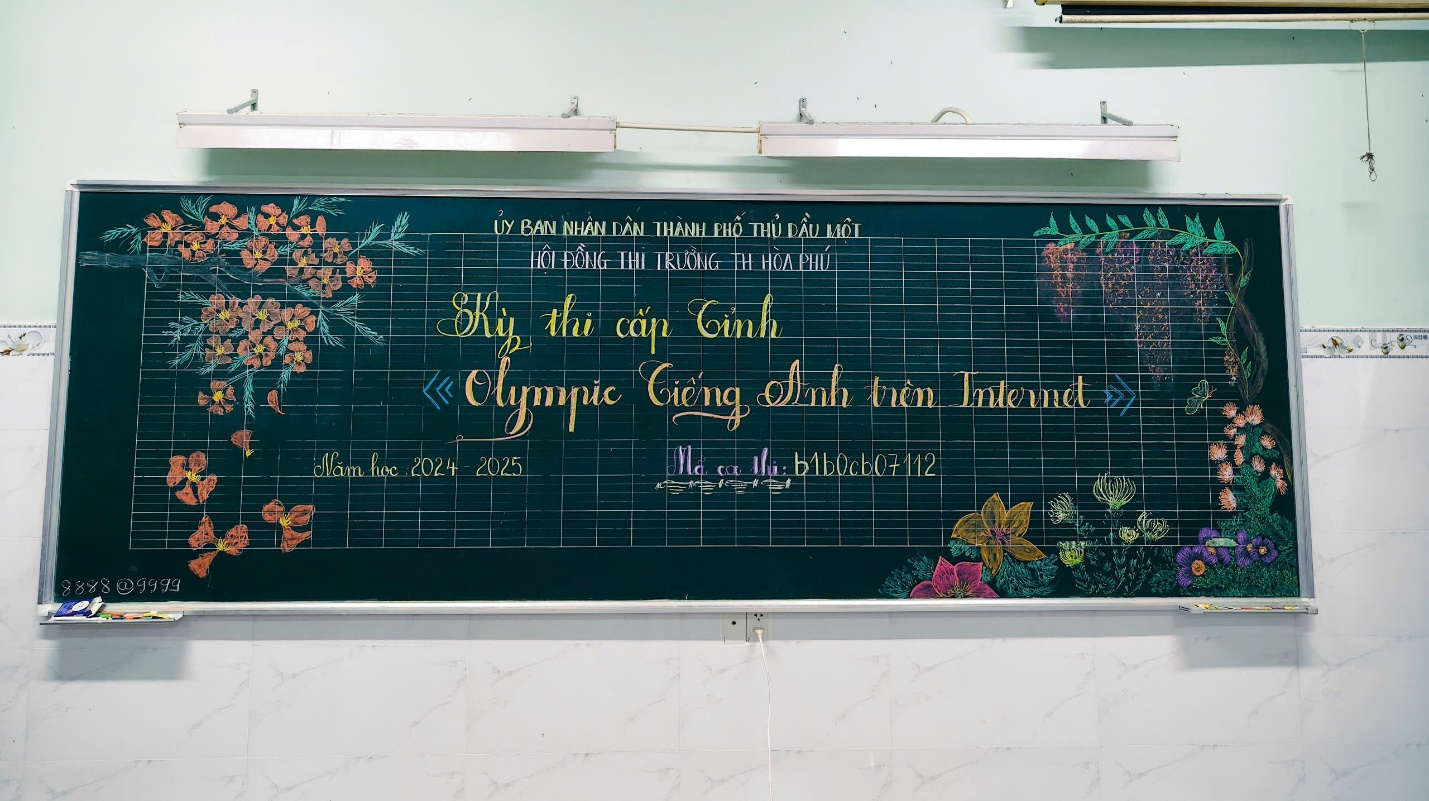 ỦY BAN NHÂN DÂN THÀNH PHỐ THỦ DẦU MỘT
HỘI ĐỒNG THI TRƯỜNG TH HÒA PHÚ
Kỳ thi cấp Tỉnh
《 Olympic Tiếng Anh trên Internet 》
Năm học 2024 - 2025
Mã ca thi: b1b0cb07112
8888@9999